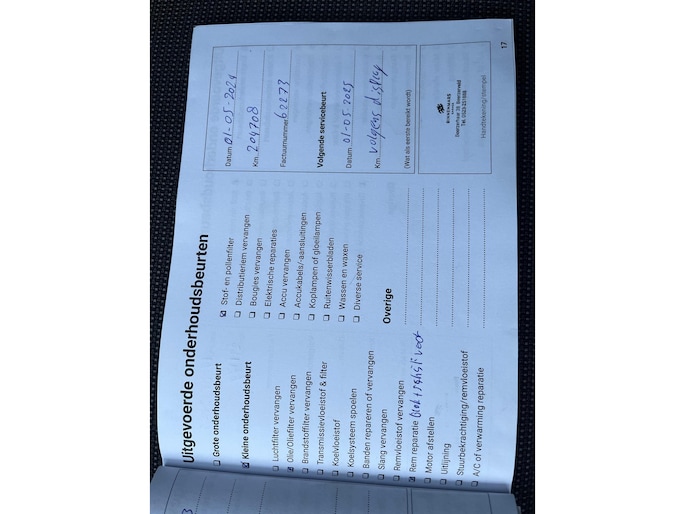 Uitgevoerde onderhoudsbeurten
☐ Grote onderhoudsbeurt
☑ Kleine onderhoudsbeurt
☐ Luchtfilter vervangen
☑ Olie/Oliefilter vervangen
☐ Brandstoffilter vervangen
☐ Transmissievloeistof & filter
☐ Koelvloeistof
☐ Koelsysteem spoelen
☐ Banden repareren of vervangen
☐ Slang vervangen
☐ Remvloeistof vervangen
☑ Rem reparatie
☐ Motor afstellen
☐ Uitlijning
☐ Stuurbekrachtiging/remvloeistof
☐ A/C of verwarming reparatie
☑ Stof- en pollenfilter
☐ Distributieriem vervangen
☐ Bougies vervangen
☐ Elektrische reparaties
☐ Accu vervangen
☐ Accukabels/-aansluitingen
☐ Koplampen of gloeilampen
☐ Ruitenwisserbladen
☐ Wassen en waxen
☐ Diverse service
Overige
Datum 01-05-2024
Km. 204708
Factuurnummer 62273
Volgende servicebeurt
Datum 01-05-2025
Km. volgens display
(Wat als eerste bereikt wordt)
Handtekening/stempel
17